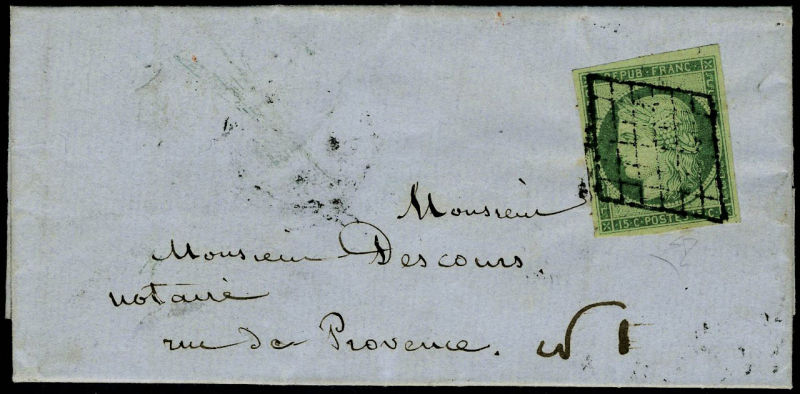 REPUB·FRANC·
15·C·POSTES
Monsieur
Monsieur Descours.
notaire
rue de Provence. n° 1